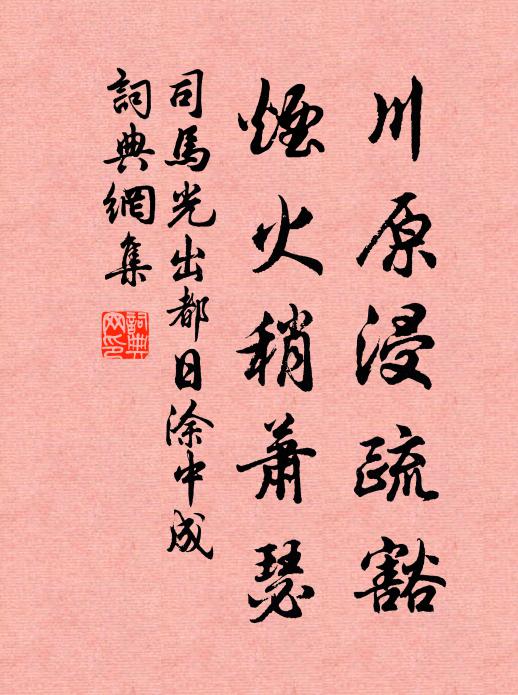 川原浸疏豁
煙火稍蕭瑟
司馬光出都日涂中成
詞典網集
詞典網印